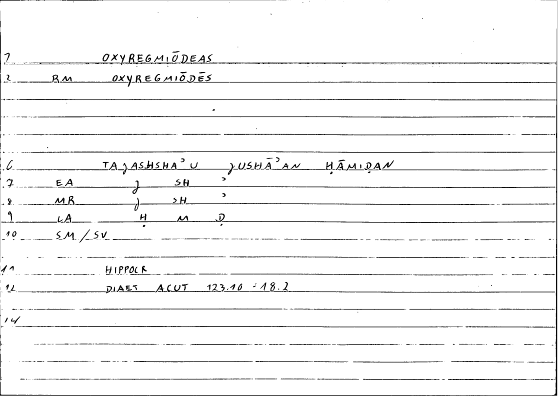 1 OXYREGMIŌDEAS
2 RM OXYREGMIŌDĒS
6 TAJASHSHAʾU JUSHĀʾAN ḤĀMIḌAN
7 EA J SH ʾ
8 MR J SH ʾ
9 LA Ḥ M Ḍ
10 SM/SV
11 HIPPOCR
12 DIAET ACUT 123.10 - 18.2
14